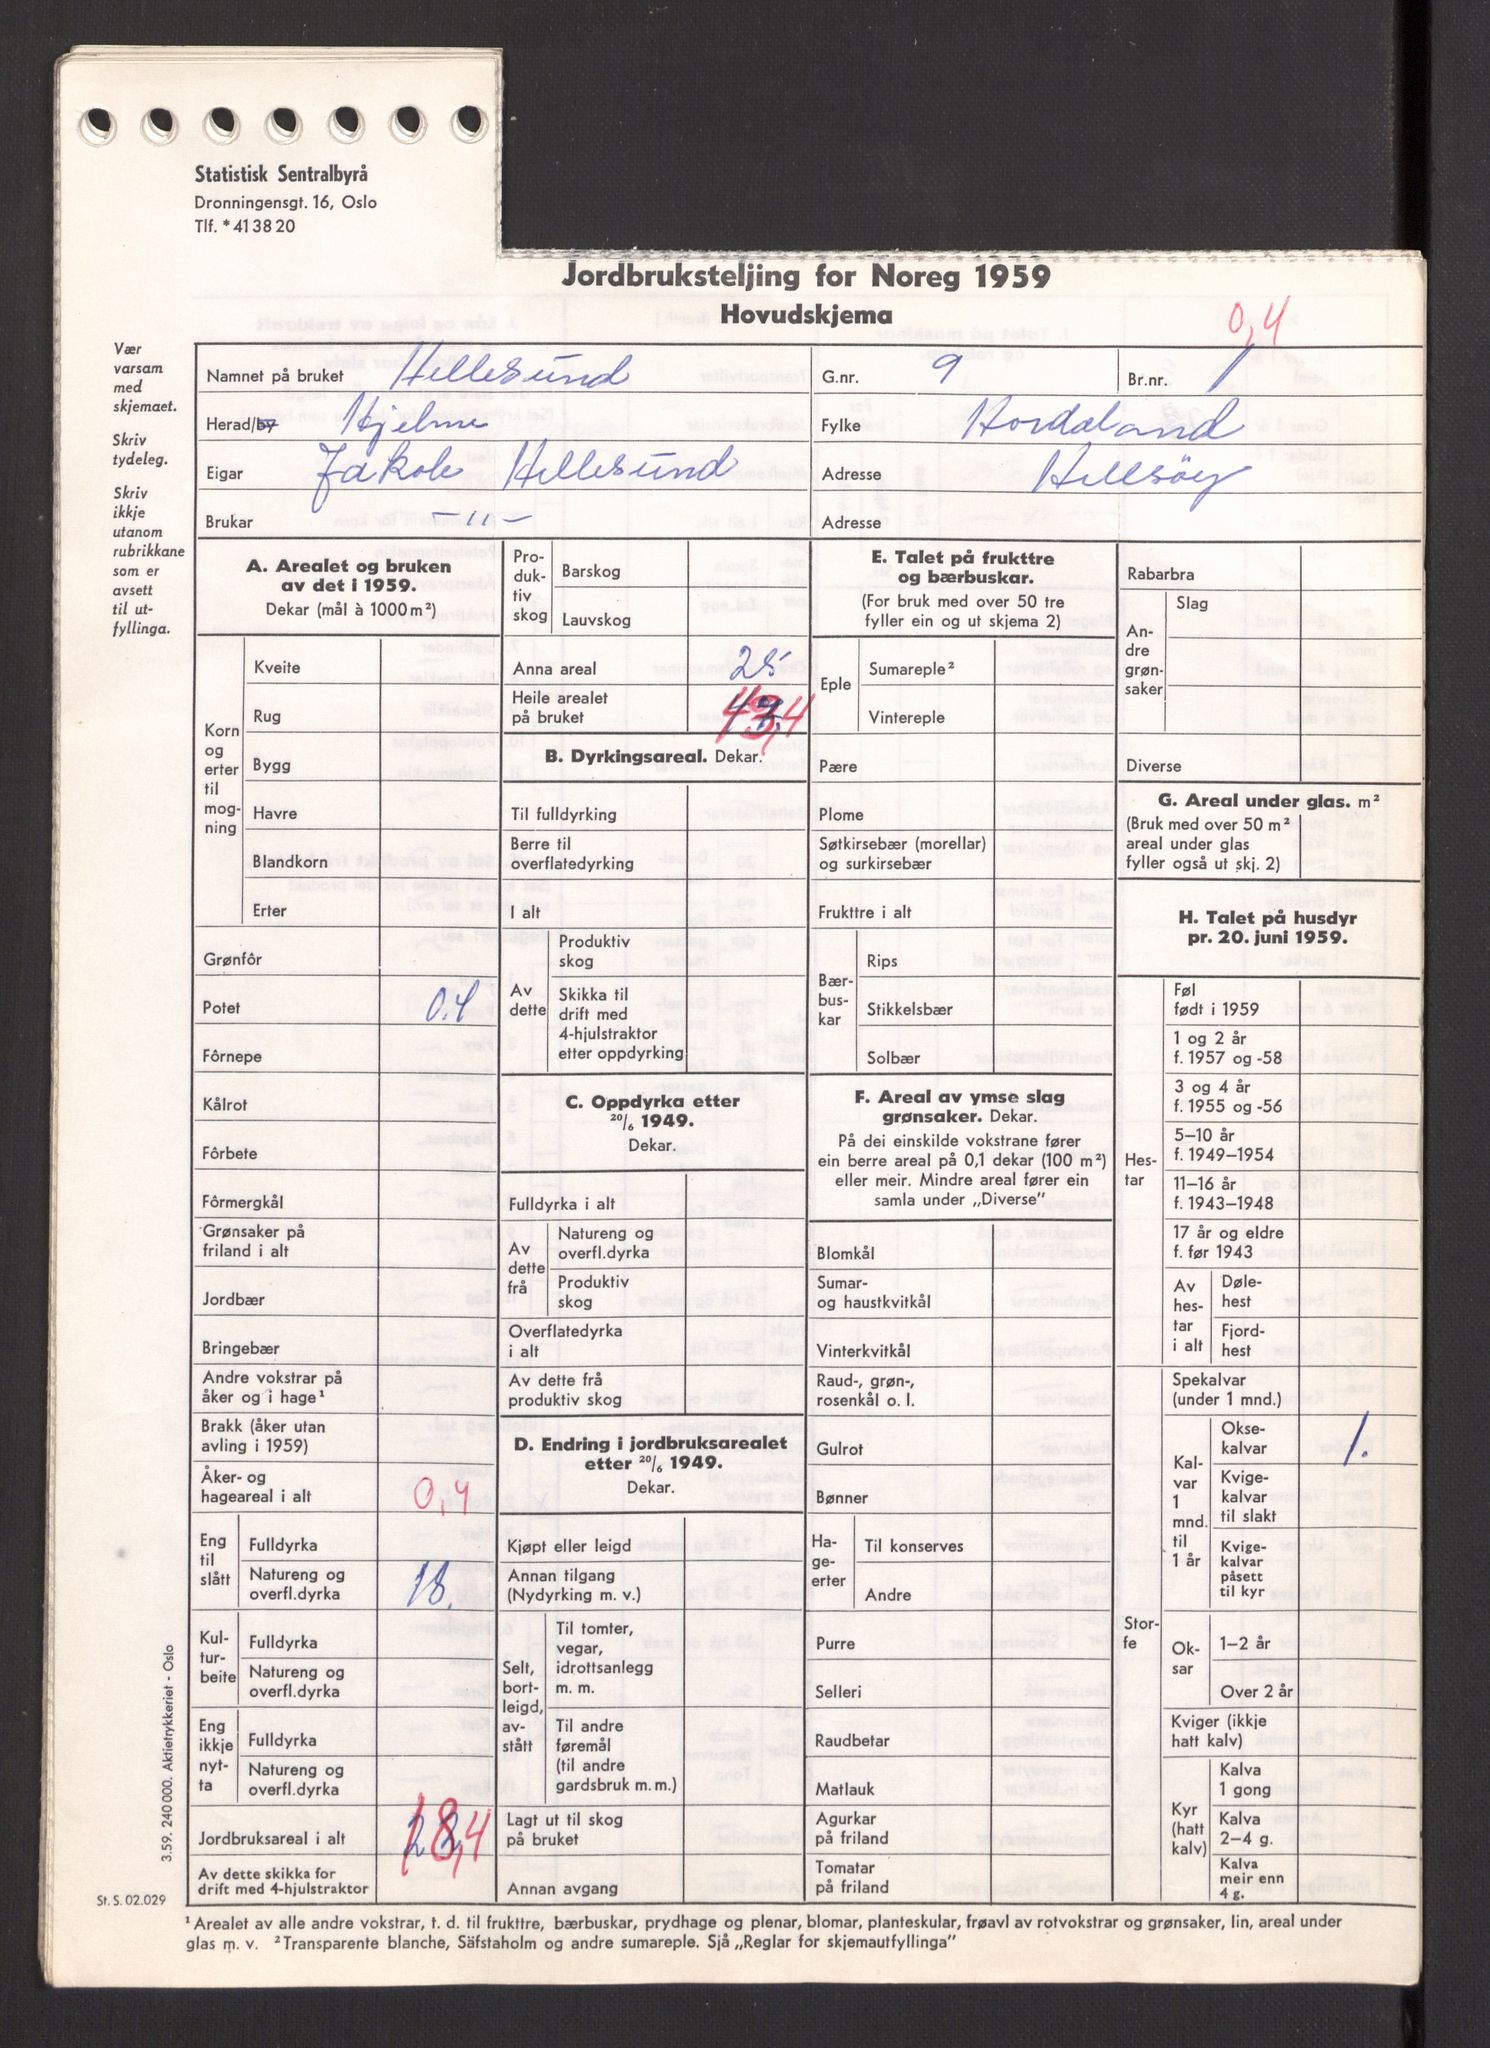 Statistisk Sentralbyrå
Dronningensgt. 16, Oslo
Tlf. *41 38 20
Jordbruksteljing for Noreg 1959
Hovudskjema
0,4
Vær
varsam
med
skjemaet.
Skriv
tydeleg.
Skriv
ikkje
utanom
rubrikkane
som er
avsett
til ut-
fyllinga.
Namnet på bruket Hellesund G.nr. 9 Br.nr. 1
Herad/by Hjelme Fylke Hordaland
Eigar Jakob Hellesund Adresse Hellsöy
Brukar -"- Adresse
A. Arealet og bruken
av det i 1959.
Dekar (mål à 1000 m²)
Korn
og
erter
til
mog-
ning
Kveite
Rug
Bygg
Havre
Blandkorn
Erter
Grønfôr
Potet 0.4
Fôrnepe
Kålrot
Fôrbete
Fôrmergkål
Grønsaker på
friland i alt
Jordbær
Bringebær
Andre vokstrar på
åker og i hage¹
Brakk (åker utan
avling i 1959)
Åker- og
hageareal i alt 0,4
Eng
til
slått
Fulldyrka
Natureng og
overfl.dyrka 18.
Kul-
tur-
beite
Fulldyrka
Natureng og
overfl.dyrka
Eng
ikkje
nyt-
ta
Fulldyrka
Natureng og
overfl.dyrka
Jordbruksareal i alt 18,4
Av dette skikka for
drift med 4-hjulstraktor
Pro-
duk-
tiv
skog
Barskog
Lauvskog
Anna areal 25
Heile arealet
på bruket 43,4
B. Dyrkingsareal. Dekar.
Til fulldyrking
Berre til
overflatedyrking
I alt
Av
dette
Produktiv
skog
Skikka til
drift med
4-hjulstraktor
etter oppdyrking
C. Oppdyrka etter
20/6 1949.
Dekar.
Fulldyrka i alt
Av
dette
frå
Natureng og
overfl.dyrka
Produktiv
skog
Overflatedyrka
i alt
Av dette frå
produktiv skog
D. Endring i jordbruksarealet
etter 20/6 1949.
Dekar.
Kjøpt eller leigd
Annan tilgang
(Nydyrking m. v.)
Selt,
bort-
leigd,
av-
stått
Til tomter,
vegar,
idrottsanlegg
m. m.
Til andre
føremål
(til andre
gardsbruk m. m.)
Lagt ut til skog
på bruket
Annan avgang
E. Talet på frukttre
og bærbuskar.
(For bruk med over 50 tre
fyller ein og ut skjema 2)
Eple
Sumareple²
Vintereple
Pære
Plome
Søtkirsebær (morellar)
og surkirsebær
Frukttre i alt
Bær-
bus-
kar
Rips
Stikkelsbær
Solbær
F. Areal av ymse slag
grønsaker. Dekar.
På dei einskilde vokstrane fører
ein berre areal på 0,1 dekar (100 m²)
eller meir. Mindre areal fører ein
samla under „Diverse”
Blomkål
Sumar-
og haustkvitkål
Vinterkvitkål
Raud-, grøn-,
rosenkål o. l.
Gulrot
Bønner
Ha-
ge-
erter
Til konserves
Andre
Purre
Selleri
Raudbetar
Matlauk
Agurkar
på friland
Tomatar
på friland
Rabarbra
An-
dre
grøn-
saker
Slag
Diverse
G. Areal under glas. m²
(Bruk med over 50 m²
areal under glas
fyller også ut skj. 2)
H. Talet på husdyr
pr. 20. juni 1959.
Hes-
tar
Føl
født i 1959
1 og 2 år
f. 1957 og -58
3 og 4 år
f. 1955 og -56
5–10 år
f. 1949–1954
11–16 år
f. 1943–1948
17 år og eldre
f. før 1943
Av
hes-
tar
i alt
Døle-
hest
Fjord-
hest
Stor-
fe
Spekalvar
(under 1 mnd.)
Kal-
var
1
mnd.
til
1 år
Okse-
kalvar 1.
Kvige-
kalvar
til slakt
Kvige-
kalvar
påsett
til kyr
Ok-
sar
1–2 år
Over 2 år
Kviger (ikkje
hatt kalv)
Kyr
(hatt
kalv)
Kalva
1 gong
Kalva
2–4 g.
Kalva
meir enn
4 g.
3.59. 240 000. Aktietrykkeriet - Oslo
St. S. 02.029
¹ Arealet av alle andre vokstrar, t. d. til frukttre, bærbuskar, prydhage og plenar, blomar, planteskular, frøavl av rotvokstrar og grønsaker, lin, areal under
glas m. v. ² Transparente blanche, Säfstaholm og andre sumareple. Sjå „Reglar for skjemautfyllinga”